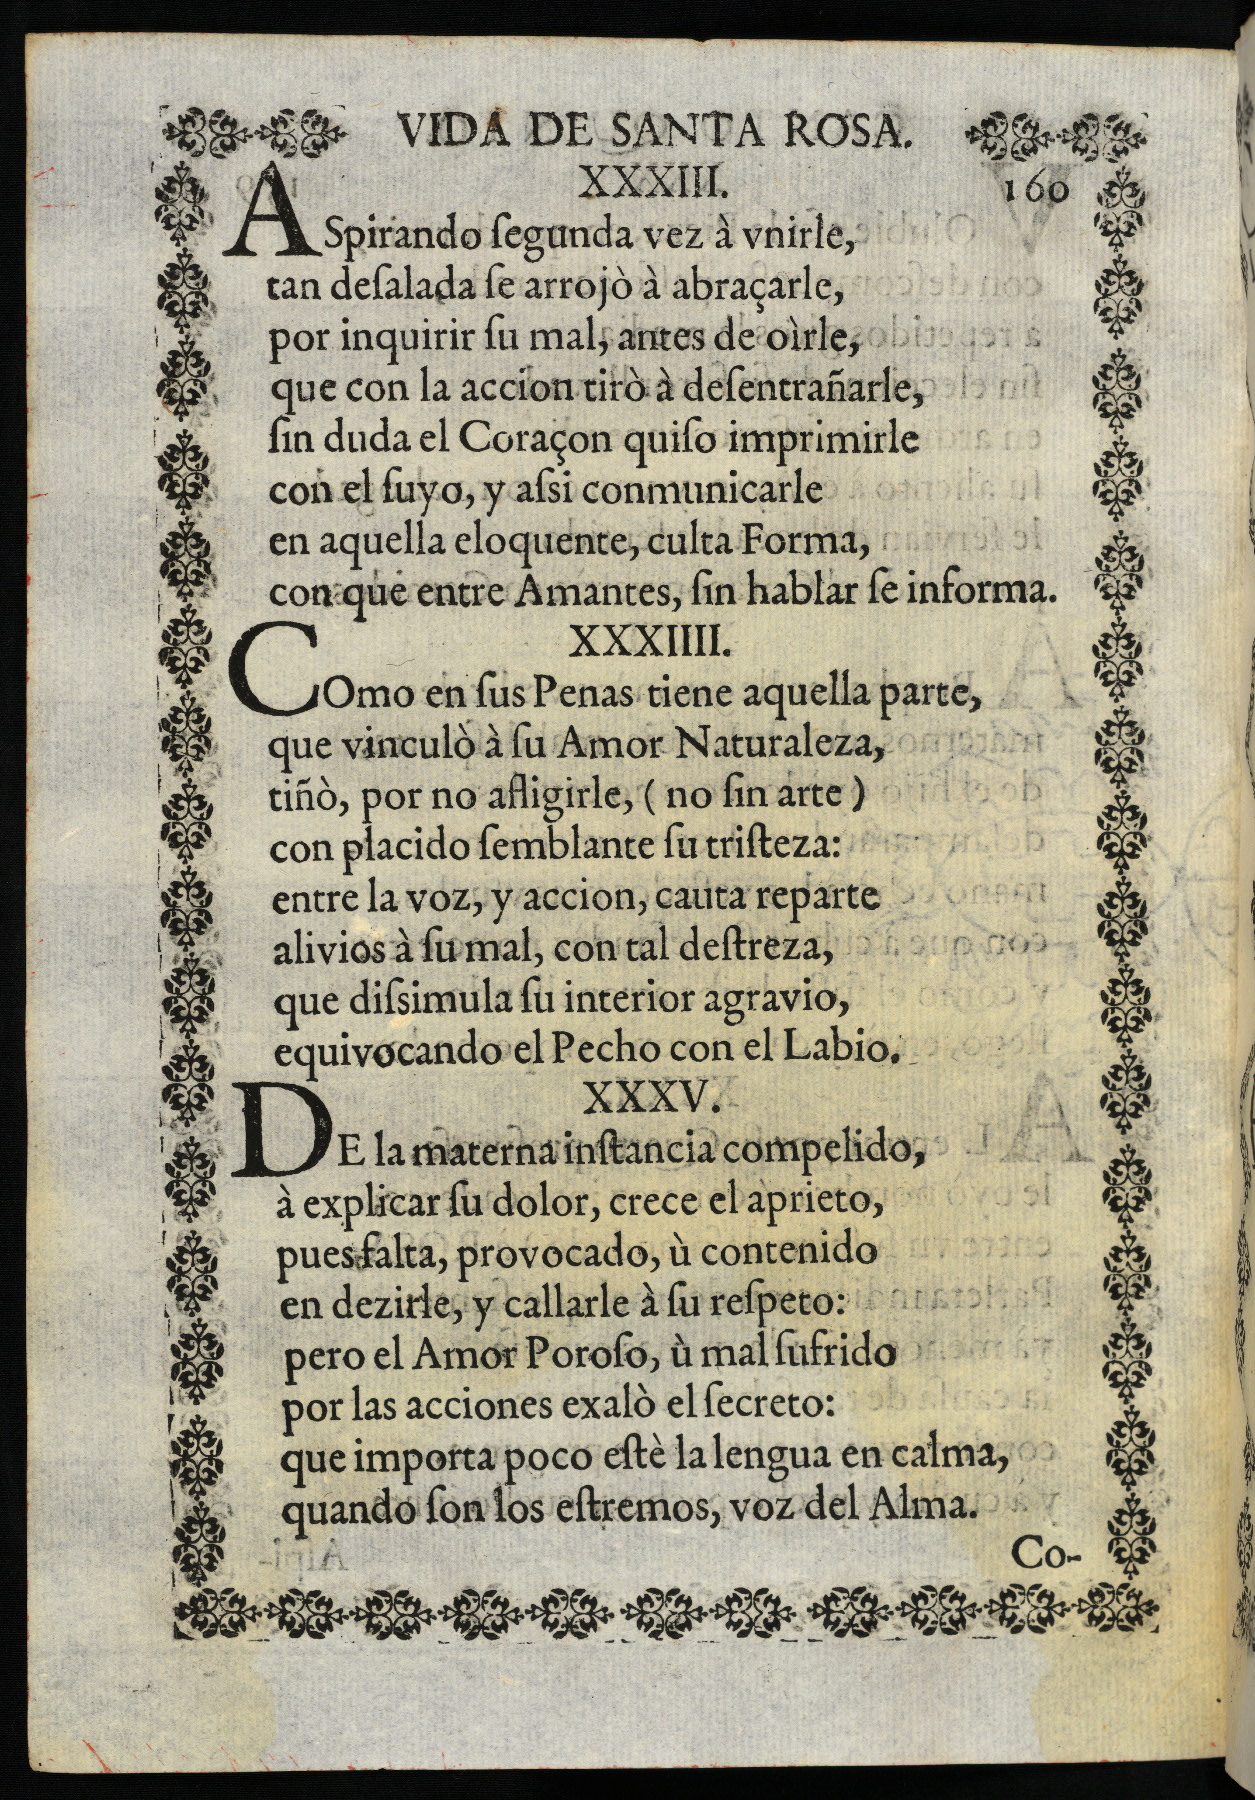 VIDA DE SANTA ROSA.
XXXIII. 160
ASpirando ſegunda vez à vnirle,
tan deſalada ſe arrojò à abraçarle,
por inquirir ſu mal, antes de oìrle,
que con la accion tirò à deſentrañarle,
ſin duda el Coraçon quiſo imprimirle
con el ſuyo, y aſsi conmunicarle
en aquella eloquente, culta Forma,
con que entre Amantes, ſin hablar ſe informa.
XXXIIII.
COmo en ſus Penas tiene aquella parte,
que vinculò à ſu Amor Naturaleza,
tiñò, por no afligirle, ( no ſin arte )
con placido ſemblante ſu triſteza:
entre la voz, y accion, cauta reparte
alivios à ſu mal, con tal deſtreza,
que diſsimula ſu interior agravio,
equivocando el Pecho con el Labio.
XXXV.
DE la materna inſtancia compelido,
à explicar ſu dolor, crece el aprieto,
pues falta, provocado, ù contenido
en dezirle, y callarle à ſu reſpeto:
pero el Amor Poroſo, ù mal ſufrido
por las acciones exalò el ſecreto:
que importa poco eſtè la lengua en calma,
quando ſon los eſtremos, voz del Alma.
Co-